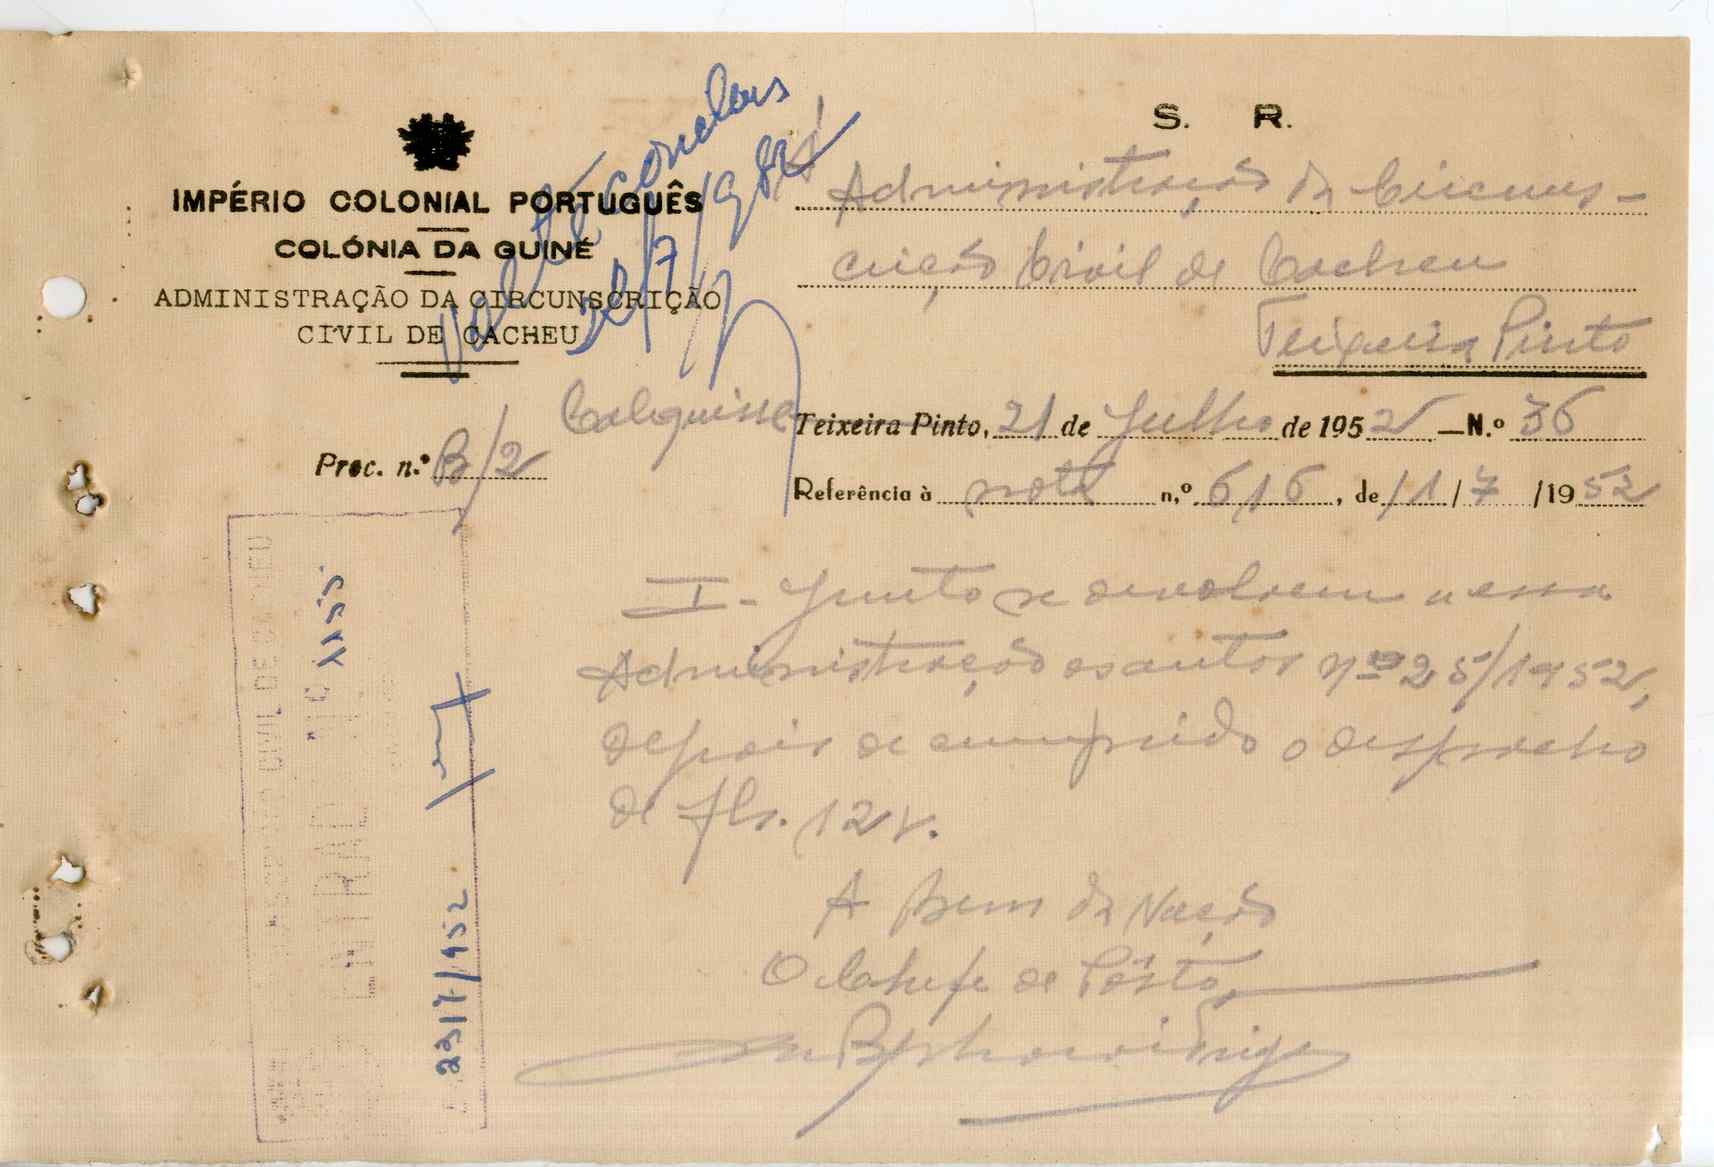 S. R.
IMPÉRIO COLONIAL PORTUGUÊS
COLÓNIA DA GUINÉ
ADMINISTRAÇÃO DA CIRCUNSCRIÇÃO
CIVIL DE CACHEU
À
Administração da Circuns-
crição Civil de Cacheu
Teixeira Pinto
Calequisse
Teixeira Pinto, 21 de Julho de 1952 — N.º 36
Proc. n.º B/2
Referência à nota n.º 616, de 11/7/1952
I - Junto se devolvem a essa
Administração os autos nº 25/1952,
depois de cumprido o despacho
de fls. 12 v.
A bem da Nação
O Chefe de Pôsto,
CIVIL DE CACHEU
ENTRADA Nº 1155
23/7/952